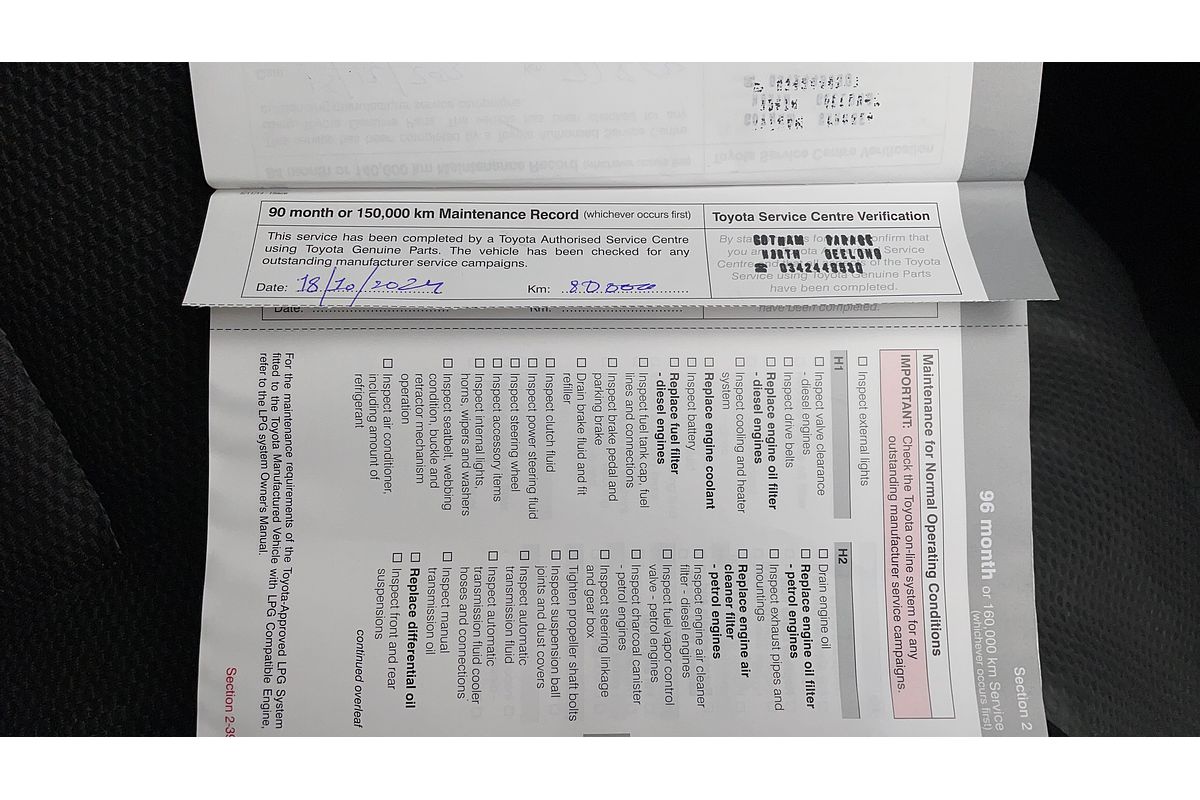 90 month or 150,000 km Maintenance Record (whichever occurs first)
This service has been completed by a Toyota Authorised Service Centre
using Toyota Genuine Parts. The vehicle has been checked for any
outstanding manufacturer service campaigns.
Date: 18/10/2024 Km: 80000
Toyota Service Centre Verification
GOTHAM GARAGE
NORTH GEELONG
☎ 0342448530
Service using Toyota Genuine Parts
have been completed.
Date: Km:
have been completed.
Section 2
96 month or 160,000 km Service
(whichever occurs first)
Maintenance for Normal Operating Conditions
IMPORTANT: Check the Toyota on-line system for any
outstanding manufacturer service campaigns.
☐ Inspect external lights
H1
☐ Inspect valve clearance
- diesel engines
☐ Inspect drive belts
☐ Replace engine oil filter
- diesel engines
☐ Inspect cooling and heater
system
☐ Replace engine coolant
☐ Inspect battery
☐ Replace fuel filter
- diesel engines
☐ Inspect fuel tank cap, fuel
lines and connections
☐ Inspect brake pedal and
parking brake
☐ Drain brake fluid and fit
refiller
☐ Inspect clutch fluid
☐ Inspect power steering fluid
☐ Inspect steering wheel
☐ Inspect accessory items
☐ Inspect internal lights,
horns, wipers and washers
☐ Inspect seatbelt, webbing
condition, buckle and
retractor mechanism
operation
☐ Inspect air conditioner,
including amount of
refrigerant
H2
☐ Drain engine oil
☐ Replace engine oil filter
- petrol engines
☐ Inspect exhaust pipes and
mountings
☐ Replace engine air
cleaner filter
- petrol engines
☐ Inspect engine air cleaner
filter - diesel engines
☐ Inspect fuel vapor control
valve - petrol engines
☐ Inspect charcoal canister
- petrol engines
☐ Inspect steering linkage
and gear box
☐ Tighten propeller shaft bolts
☐ Inspect suspension ball
joints and dust covers
☐ Inspect automatic
transmission fluid
☐ Inspect automatic
transmission fluid cooler
hoses, and connections
☐ Inspect manual
transmission oil
☐ Replace differential oil
☐ Inspect front and rear
suspensions
continued overleaf
For the maintenance requirements of the Toyota-Approved LPG System
fitted to the Toyota Manufactured Vehicle with LPG Compatible Engine,
refer to the LPG system Owner's Manual.
Section 2-39